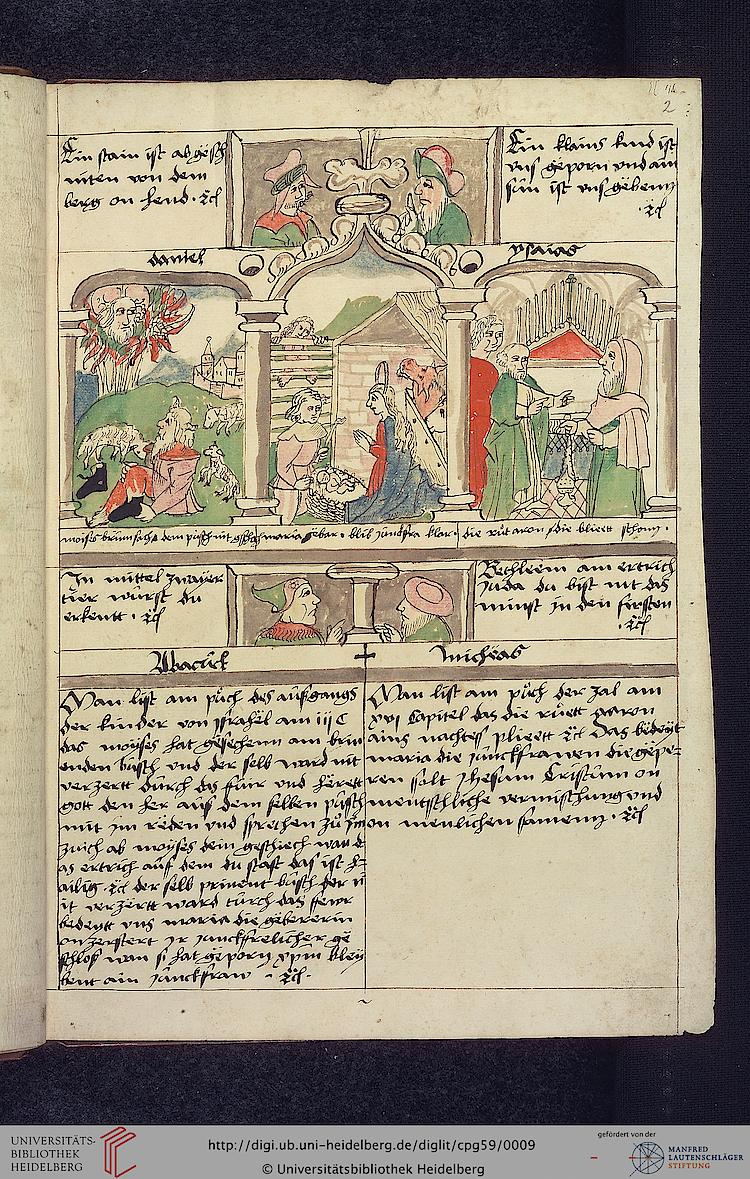 2
Ein stain ist abgesch
niten von dem
berg on hend · ꝛcͣ
Ein klains kind ist
vns geporn vnd ain
sun ist vns gebenn
· ꝛcͣ
daniel
ysaias
moises brinn sach dem pusch nit
maria gebar · blib junckfra klar ·
die ruͦt aron / die blieett schonn ·
In mittel zwayer
tier wurst du
erkentt · ꝛcͣ
Bethleem am ertrich
Juda du bist nit das
minst in den firsten
· ꝛcͣ
Abacuck
Micheas
Man list am puͦch des ausgangs
der kinder von jsrahel am iii C
das moyses hat gesechenn ain brin
enden busch vnd der selb ward nit
verzertt durch das fuir vnd herett
gott den her aus dem selben pusch
mit im reden vnd sprechen zuͦ im
zuich ab moyses dein geschiech wan d
as ertrich auff dem du stast das ist h
ailig · ꝛcͣ der selb prinent busch der n
it verzertt ward durch das fewr
bedeytt vns maria die gebererin
on zerstert jr junckfrelicher ge
schlos wan si hat geporn xpm bley
bent ain junckfraw · ꝛcͣ ·
Man list am puͦch der zal am
xvi Capitel das die ruͦett aaron
ains nachtess plieett ꝛcͣ das bedeytt
maria die junckfrawen die gepe
ren solt Jhesum Cristum on
mentschliche vermischung vnd
on menlichen samenn · ꝛcͣ
UNIVERSITÄTS-
BIBLIOTHEK
HEIDELBERG
http://digi.ub.uni-heidelberg.de/diglit/cpg59/0009
© Universitätsbibliothek Heidelberg
gefördert von der
MANFRED
LAUTENSCHLÄGER
STIFTUNG